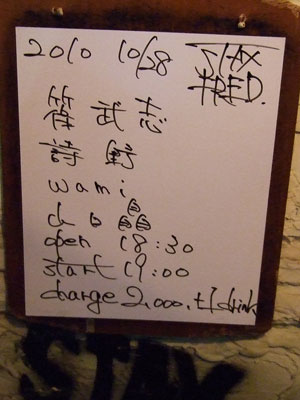 2010 10/28 STAX
FRED.
篠 武志
詩野
wami
山口晶
open 18:30
start 19:00
charge 2,000.+1drink
STAX